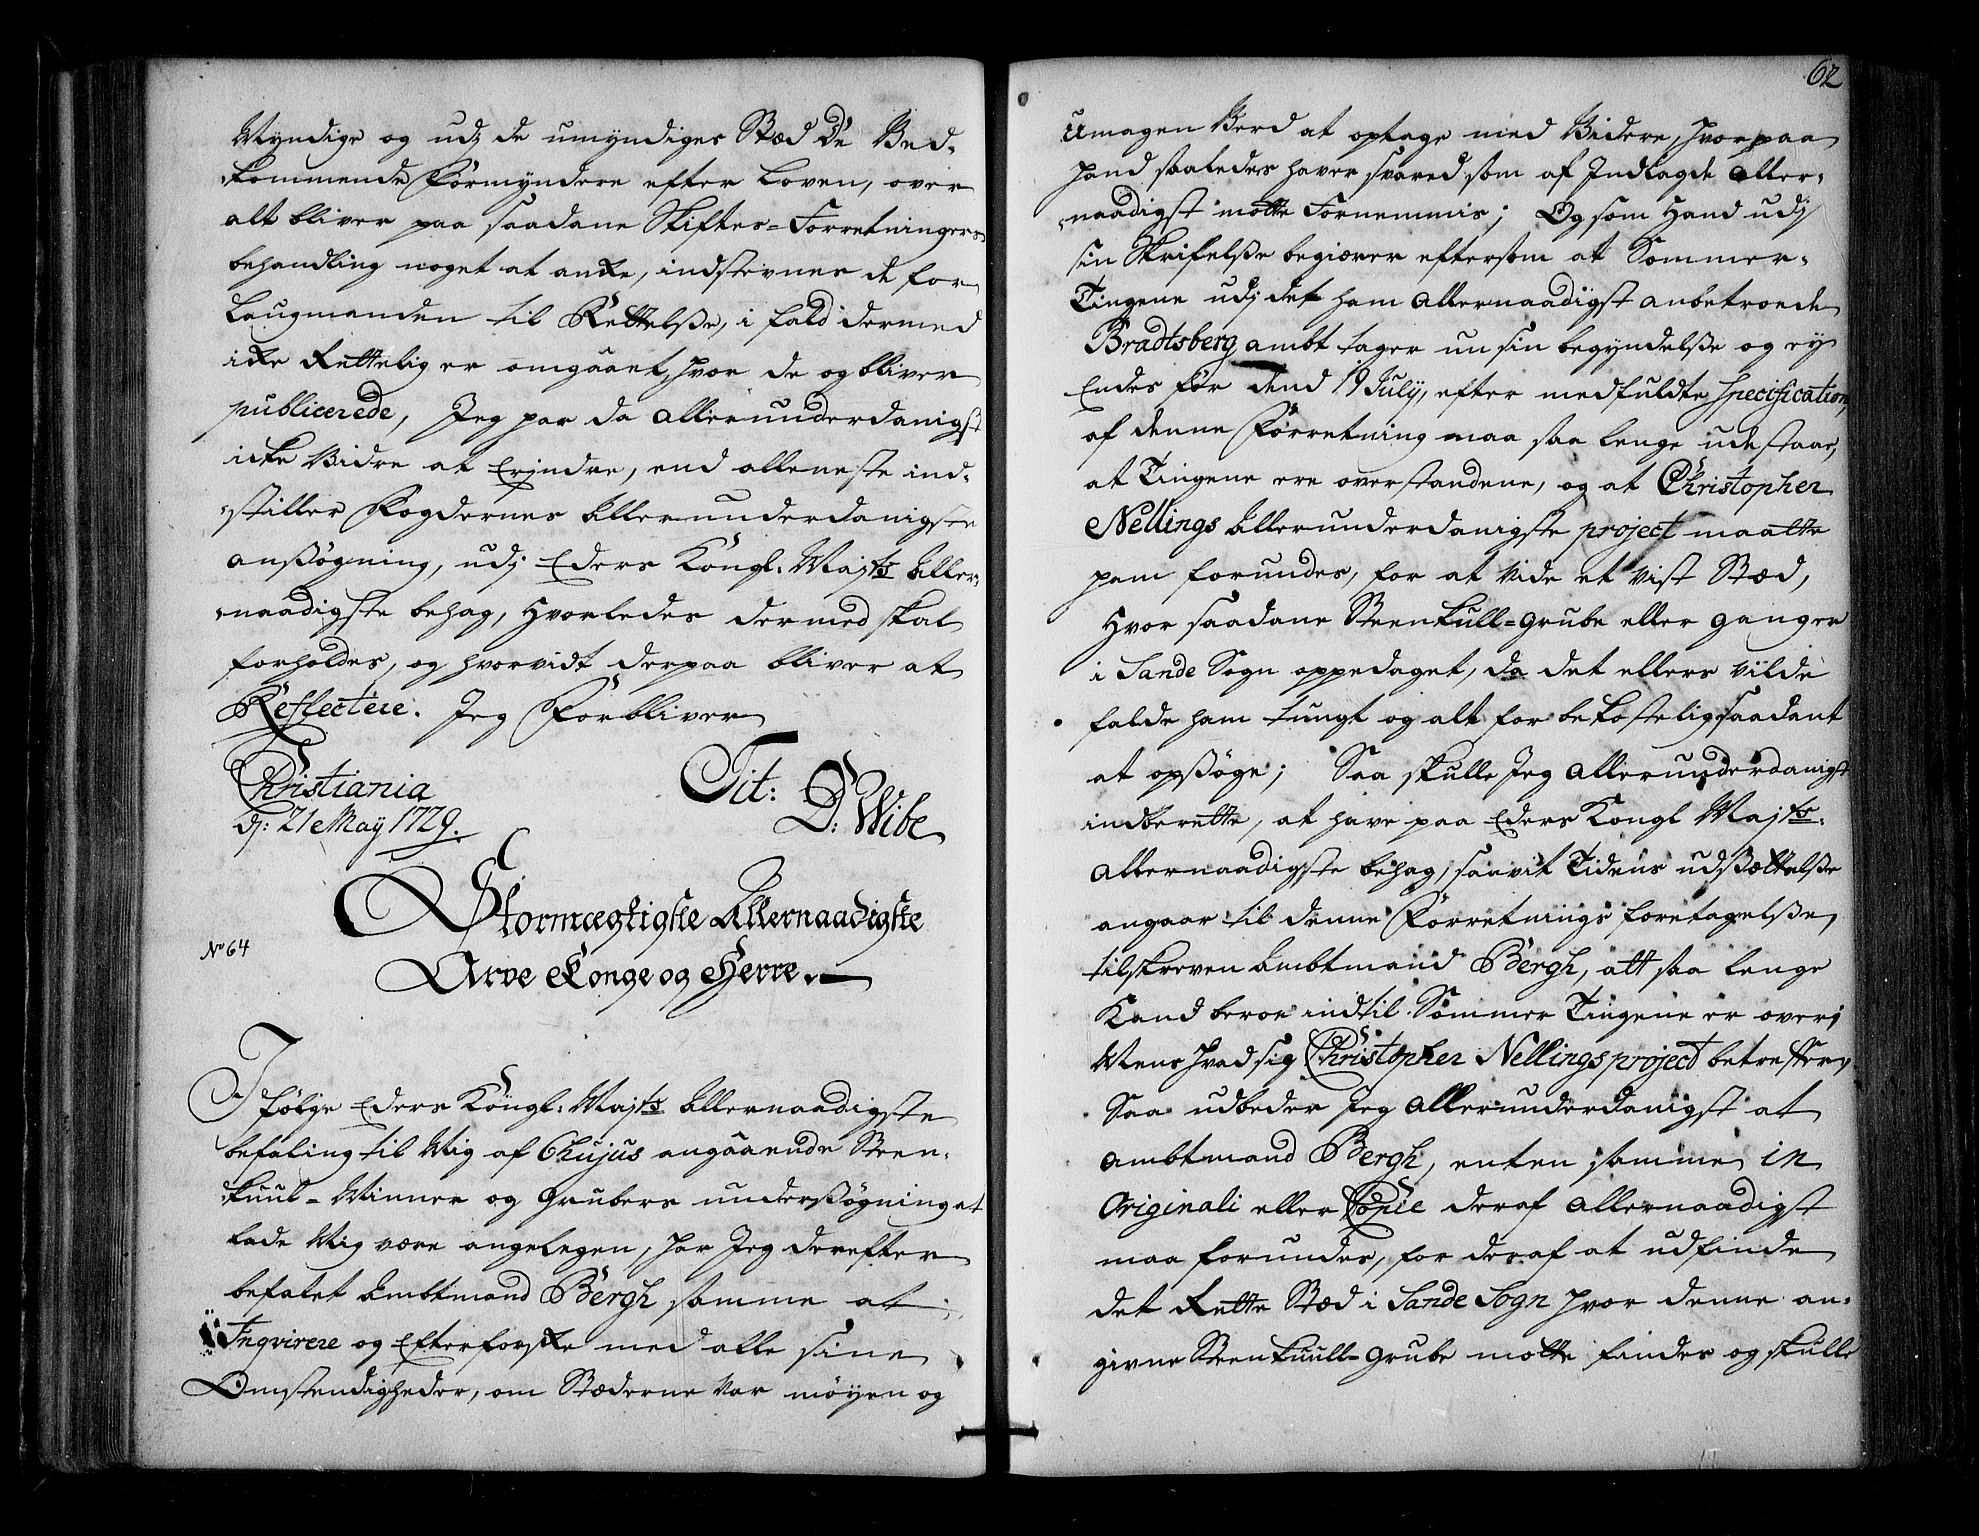 Myndige og udj de umyndiges Stæd De Ved-
kommende Formyndere efter Loven, over
alt bliver paa saadane Skiftes-Forretningers
behandling noget at anke, indstevnes de for
Laugmanden til Rettelsse, i fald dermed
ikke Rettelig er omgaaet, hvor de og bliver
publicerede, Jeg har da allerunderdanigst
icke Vidre at Erindre, end alleneste ind-
stiller Fogdernes Allerunderdanigste
ansøgning, udj Eders Kongl: Mayts Aller-
naadigste behag, Hvorledes dermed skal
forholdes, og hvorvidt derpaa bliver at
Reflectere. Jeg Forbliver
Christiania
dj: 21 Maÿ 1729.
Tit:
D: Wibe
Stormægtigste Allernaadigste
No 64
Arve Konge og Herre.
I følge Eders Kongl: Mayts Allernaadigste
befaling til Mig af 6 hujus angaaende Steen-
kuul-Minner og Grubers undersøgning at
lade Mig være angelegen, har Jeg derefter
befalet Ambtmand Bergh samme at
Inqvirere og Efterforske med alle sine
Omstendigheder, om Stæderne var møyen og
62
Umagen Verd at optage med Videre, hvorpaa
hand saaledes haver svared som af Indlagde Aller-
naadigst motte Fornemmis; Og som Hand udj
sin Skrifelsse begiærer eftersom at Sommer-
Tingene udj det ham Allernaadigst anbetroede
Bradtsberg ambt tager nu sin begyndelsse og ey
Endes før dend 19 Julÿ, efter medfuldte Specification,
af denne Forretning maa saa lenge udestaar,
at Tingene ere overstandene, og at Christopher
Nellings Allerunderdanigste project maatte
ham forundes, for at vide et vist Stæd,
Hvor saadane Steenkull-Grube eller ganger
i Sande Sogn oppedaget, da det ellers vilde
falde ham tungt og alt for bekostelig saadant
at opsøge; Saa skulle Jeg Allerunderdanigst
indberette, at have paa Eders Kongl Mayts:
Allernaadigste behag, saavit Tidens udsættelsse
angaar til denne Forretnings foretagelsse,
tilskreven Ambtmand Bergh, att saa lenge
Kand beroe indtil Sommer Tingene er over;
Mens hvad sig Christopher Nellings project betreffer,
Saa udbeder Jeg Allerunderdanigst at
Ambtmand Bergh, enten samme in
Originali eller Copie deraf Allernaadigst
maa forundes, for deraf at udfinde
det Rette Stæd i Sande Sogn hvor denne an-
givne Steenkuull-Grube motte findes og skulle